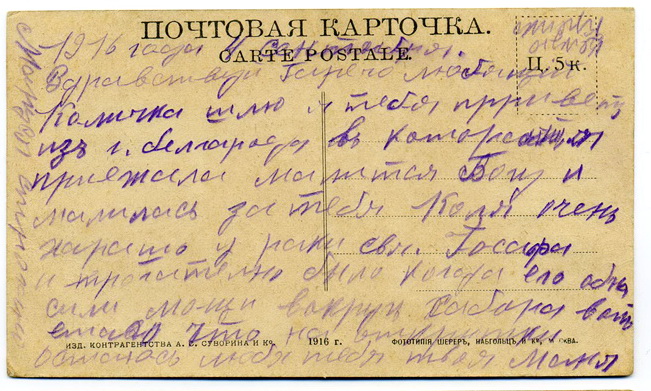 ПОЧТОВАЯ КАРТОЧКА.
CARTE POSTALE.
Ц. 5 к.
1916 года 4 сентября.
Здравствуй Горячо любящий
Количка шлю я тебя привет
изъ г. белгорода въ котором я
приежала молится Богу и
малилась за тебя Коля очень
харашо у раки свя. Иосафа
и трогателно было когда его обна
сили мощи вокруг сабора вот
что на
осталась любя тебя твоя Маня
ИЗД. КОНТРАГЕНТСТВА А. С. СУВОРИНА И Ко.
1916 г.
ФОТОТИПІЯ ШЕРЕРЪ, НАБГОЛЬЦЪ И Ко, МОСКВА.